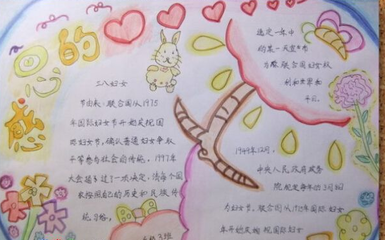 感恩的心
三八妇女
节由来:联合国从1975
年国际妇女节开始庆祝国
际妇女节,确认普通妇女争取
平等参与社会的传统。1977年
大会通过了一项决议,请每个国
家按照自己的历史和民族传
统习俗,
选定一年中
的某一天宣布
为
利和世界和
1949年12月,
中央人民政府政务
院规定每年的3月8日
为妇女节。联合国从1975年国际妇女
年开始庆祝国际妇女